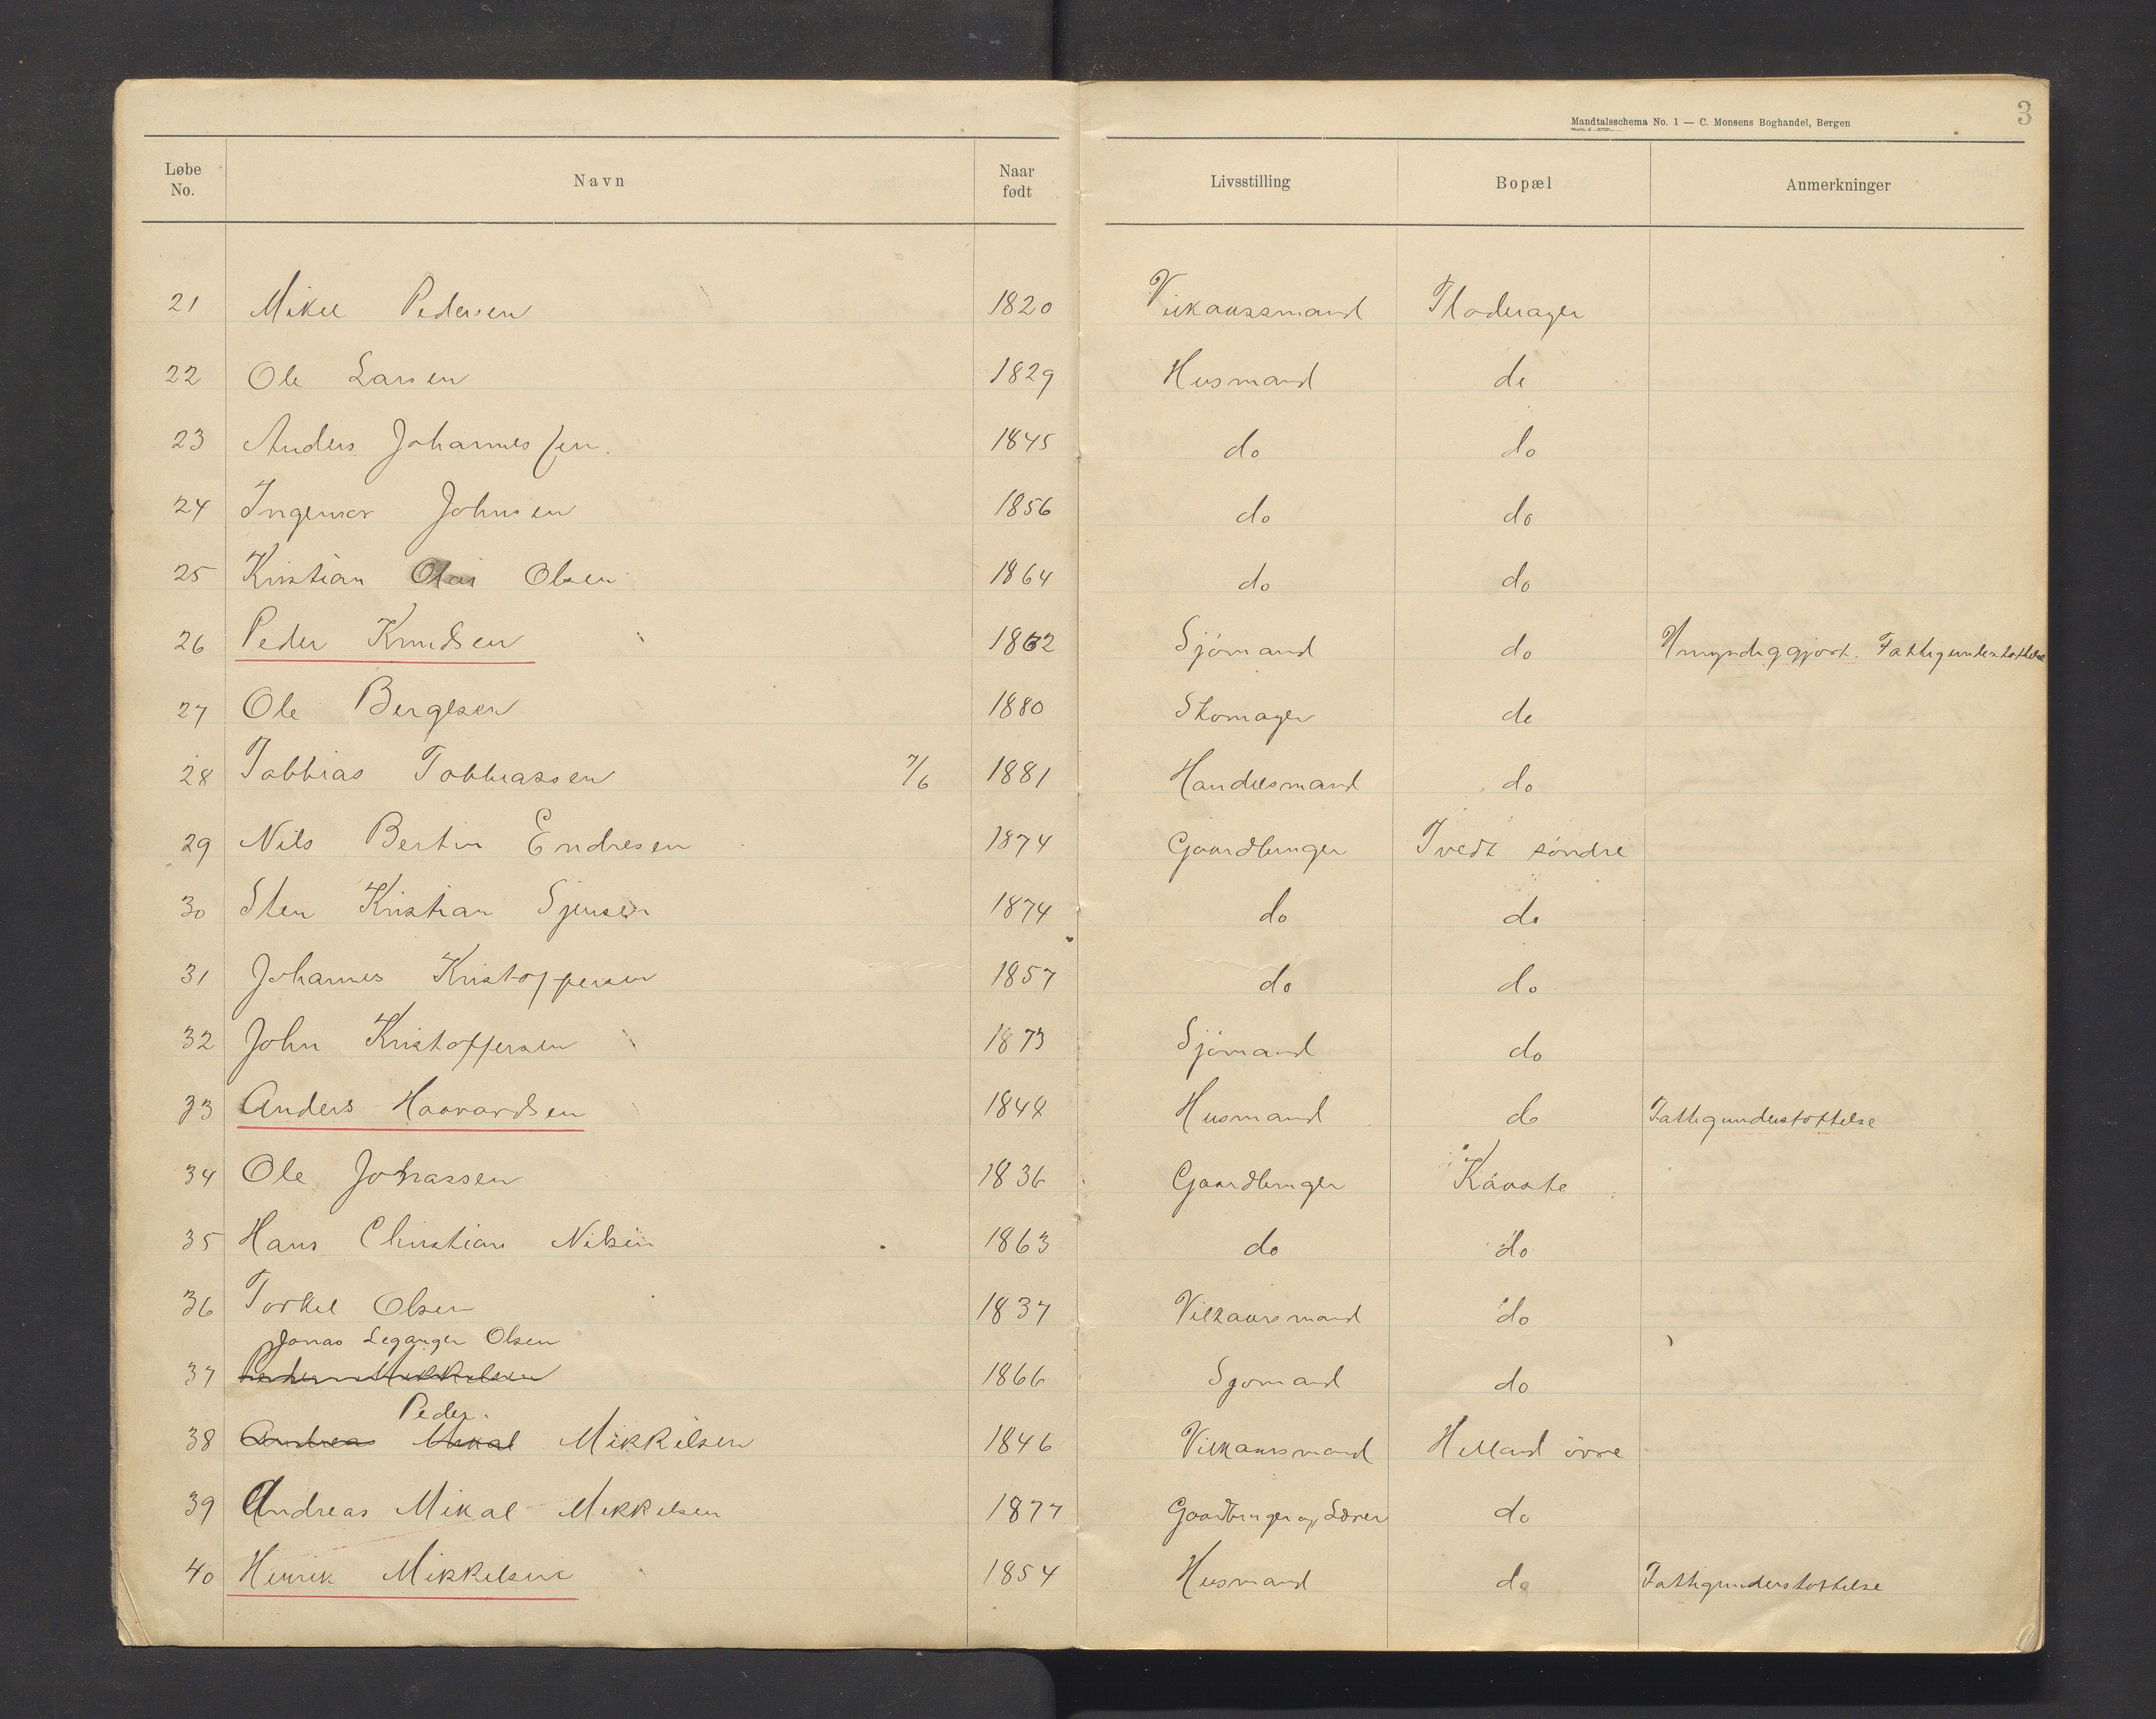 Mandtalsschema No. 1 — C. Monsens Boghandel, Bergen 3
Løbe No. Navn Naar født Livsstilling Bopæl Anmerkninger
21 Mikel Pedersen 1820 Vilkaarsmand Floderager
22 Ole Larsen 1829 Husmand do
23 Anders Johannessen. 1845 do do
24 Ingemor Johnsen 1856 do do
25 Kristian Olai Olsen 1864 do do
26 Peder Knudsen 1862 Sjömand do Umyndiggjort. Fattigunderstøttelse
27 Ole Bergesen 1880 Skomager do
28 Tobbias Tobbiassen 7/6 1881 Handelsmand do
29 Nils Bertin Endresen 1874 Gaardbruger Tvedt söndre
30 Sten Kristian Sjensen 1874 do do
31 Johannes Kristoffersen 1857 do do
32 John Kristoffersen 1873 Sjömand do
33 Anders Haavardsen 1848 Husmand do Fattigunderstøttelse
34 Ole Johassen 1836 Gaardbruger Kåvste
35 Hans Christian Nilsen 1863 do do
36 Torkel Olsen 1837 Vilkaarsmand do
Jonas Leganger Olsen
37 Peder Mikkelsen 1866 Sjomand do
Peder.
38 Andreas Mikal Mikkelsen 1846 Vilkaarsmand Helland övre
39 Andreas Mikal Mikkelsen 1877 Gaardbruger og Lærer do
40 Henrik Mikkelsen 1854 Husmand do Fattigunderstottelse